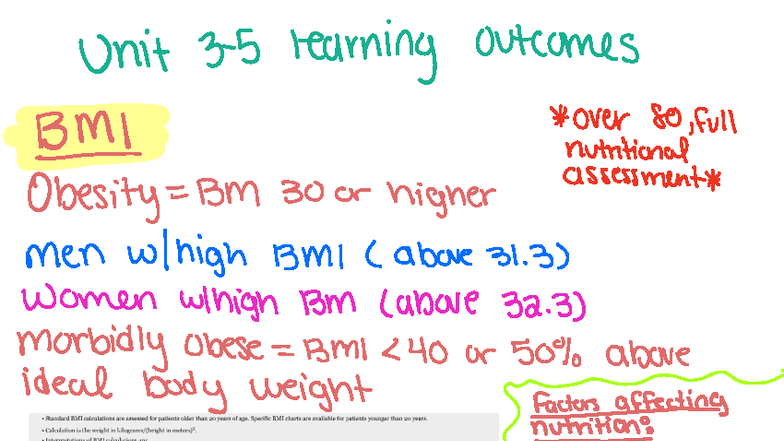 Unit 3-5 learning outcomes
BMI
*over 80, full
nutritional
assessment*
Obesity = BM 30 or higher
men w/high BMI (above 31.3)
women w/high Bm (above 32.3)
morbidly obese = BMI <40 or 50% above
ideal body weight
Factors affecting
nutrition:
• Standard BMI calculations are assessed for patients older than 20 years of age. Specific BMI charts are available for patients younger than 20 years.
• Calculation is the weight in kilograms/(height in meters)².
• Interpretations of BMI calculations are: